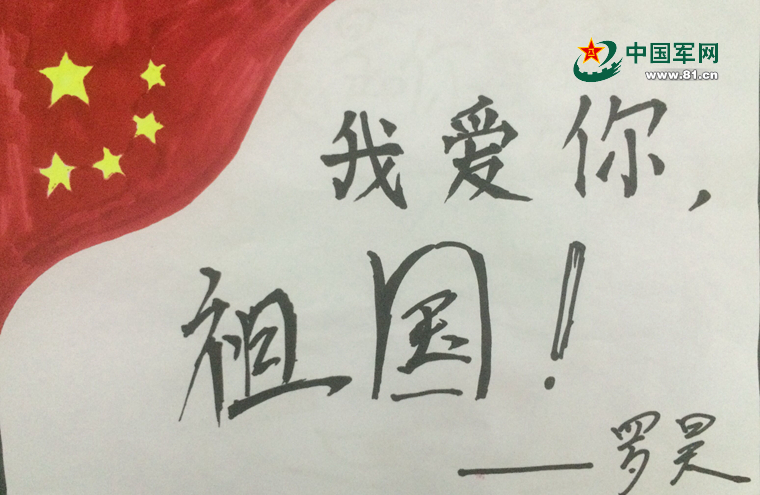 中国军网
www.81.cn
我爱你，
祖国！
——罗昊